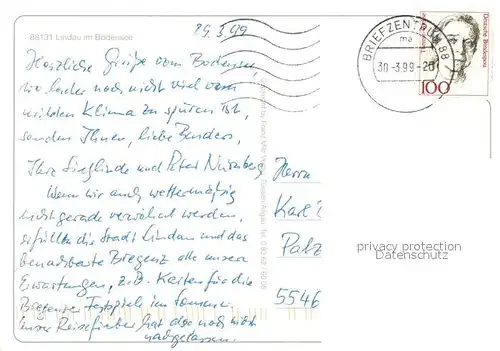 29.3.99
88131 Lindau im Bodensee
Herzliche Grüße vom Bodensee,
wo leider noch nicht viel vom
milden Klima zu spüren ist,
senden Ihnen, liebe Benders,
Ihre Sieglinde und Peter Nürnberg
Wenn wir auch wettermäßig
nicht gerade verwöhnt werden,
erfüllen die Stadt Lindau und das
benachbarte Bregenz alle unsere
Erwartungen, z.B. Karten für die
Bregenzer Festspiele im Sommer.
Unser Reisefieber hat also noch nicht
nachgelassen.
BRIEFZENTRUM 88
ma
30-3.99-20
Deutsche Bundespost
100
Herrn
Karl
Palz
5546
privacy protection
Datenschutz